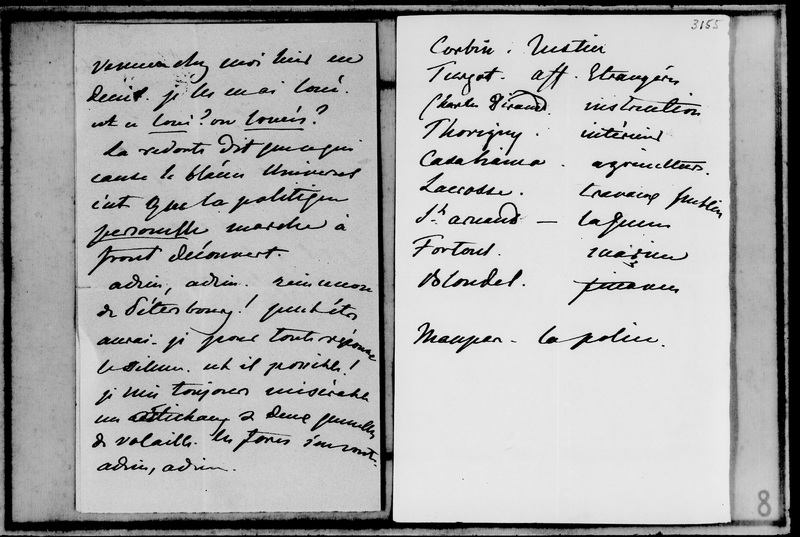 venus chez moi hier en
deuil. je les m'ai loué.
est ce loué? ou loués?
La redoute dit que ce qui
cause le blâme universel
c'est que la politique
personnelle marche à
front découvert.
adieu, adieu. rien encore
de Pétersbourg! peut être
aurai-je pour toute réponse
le silence. est il possible!
je suis toujours misérable
un artichaux & deux
de volaille. les forces s'en vont.
adieu, adieu.
3155
Corbin. Justice
Turgot. aff. Etrangères
Charles Giraud. instruction
Thorigny. intérieur
Casabianca. agriculture.
Lacrosse. travaux publics
St arnaud — la guerre
Fortoul. marine
Blondel. finances
Maupas - la police.
8